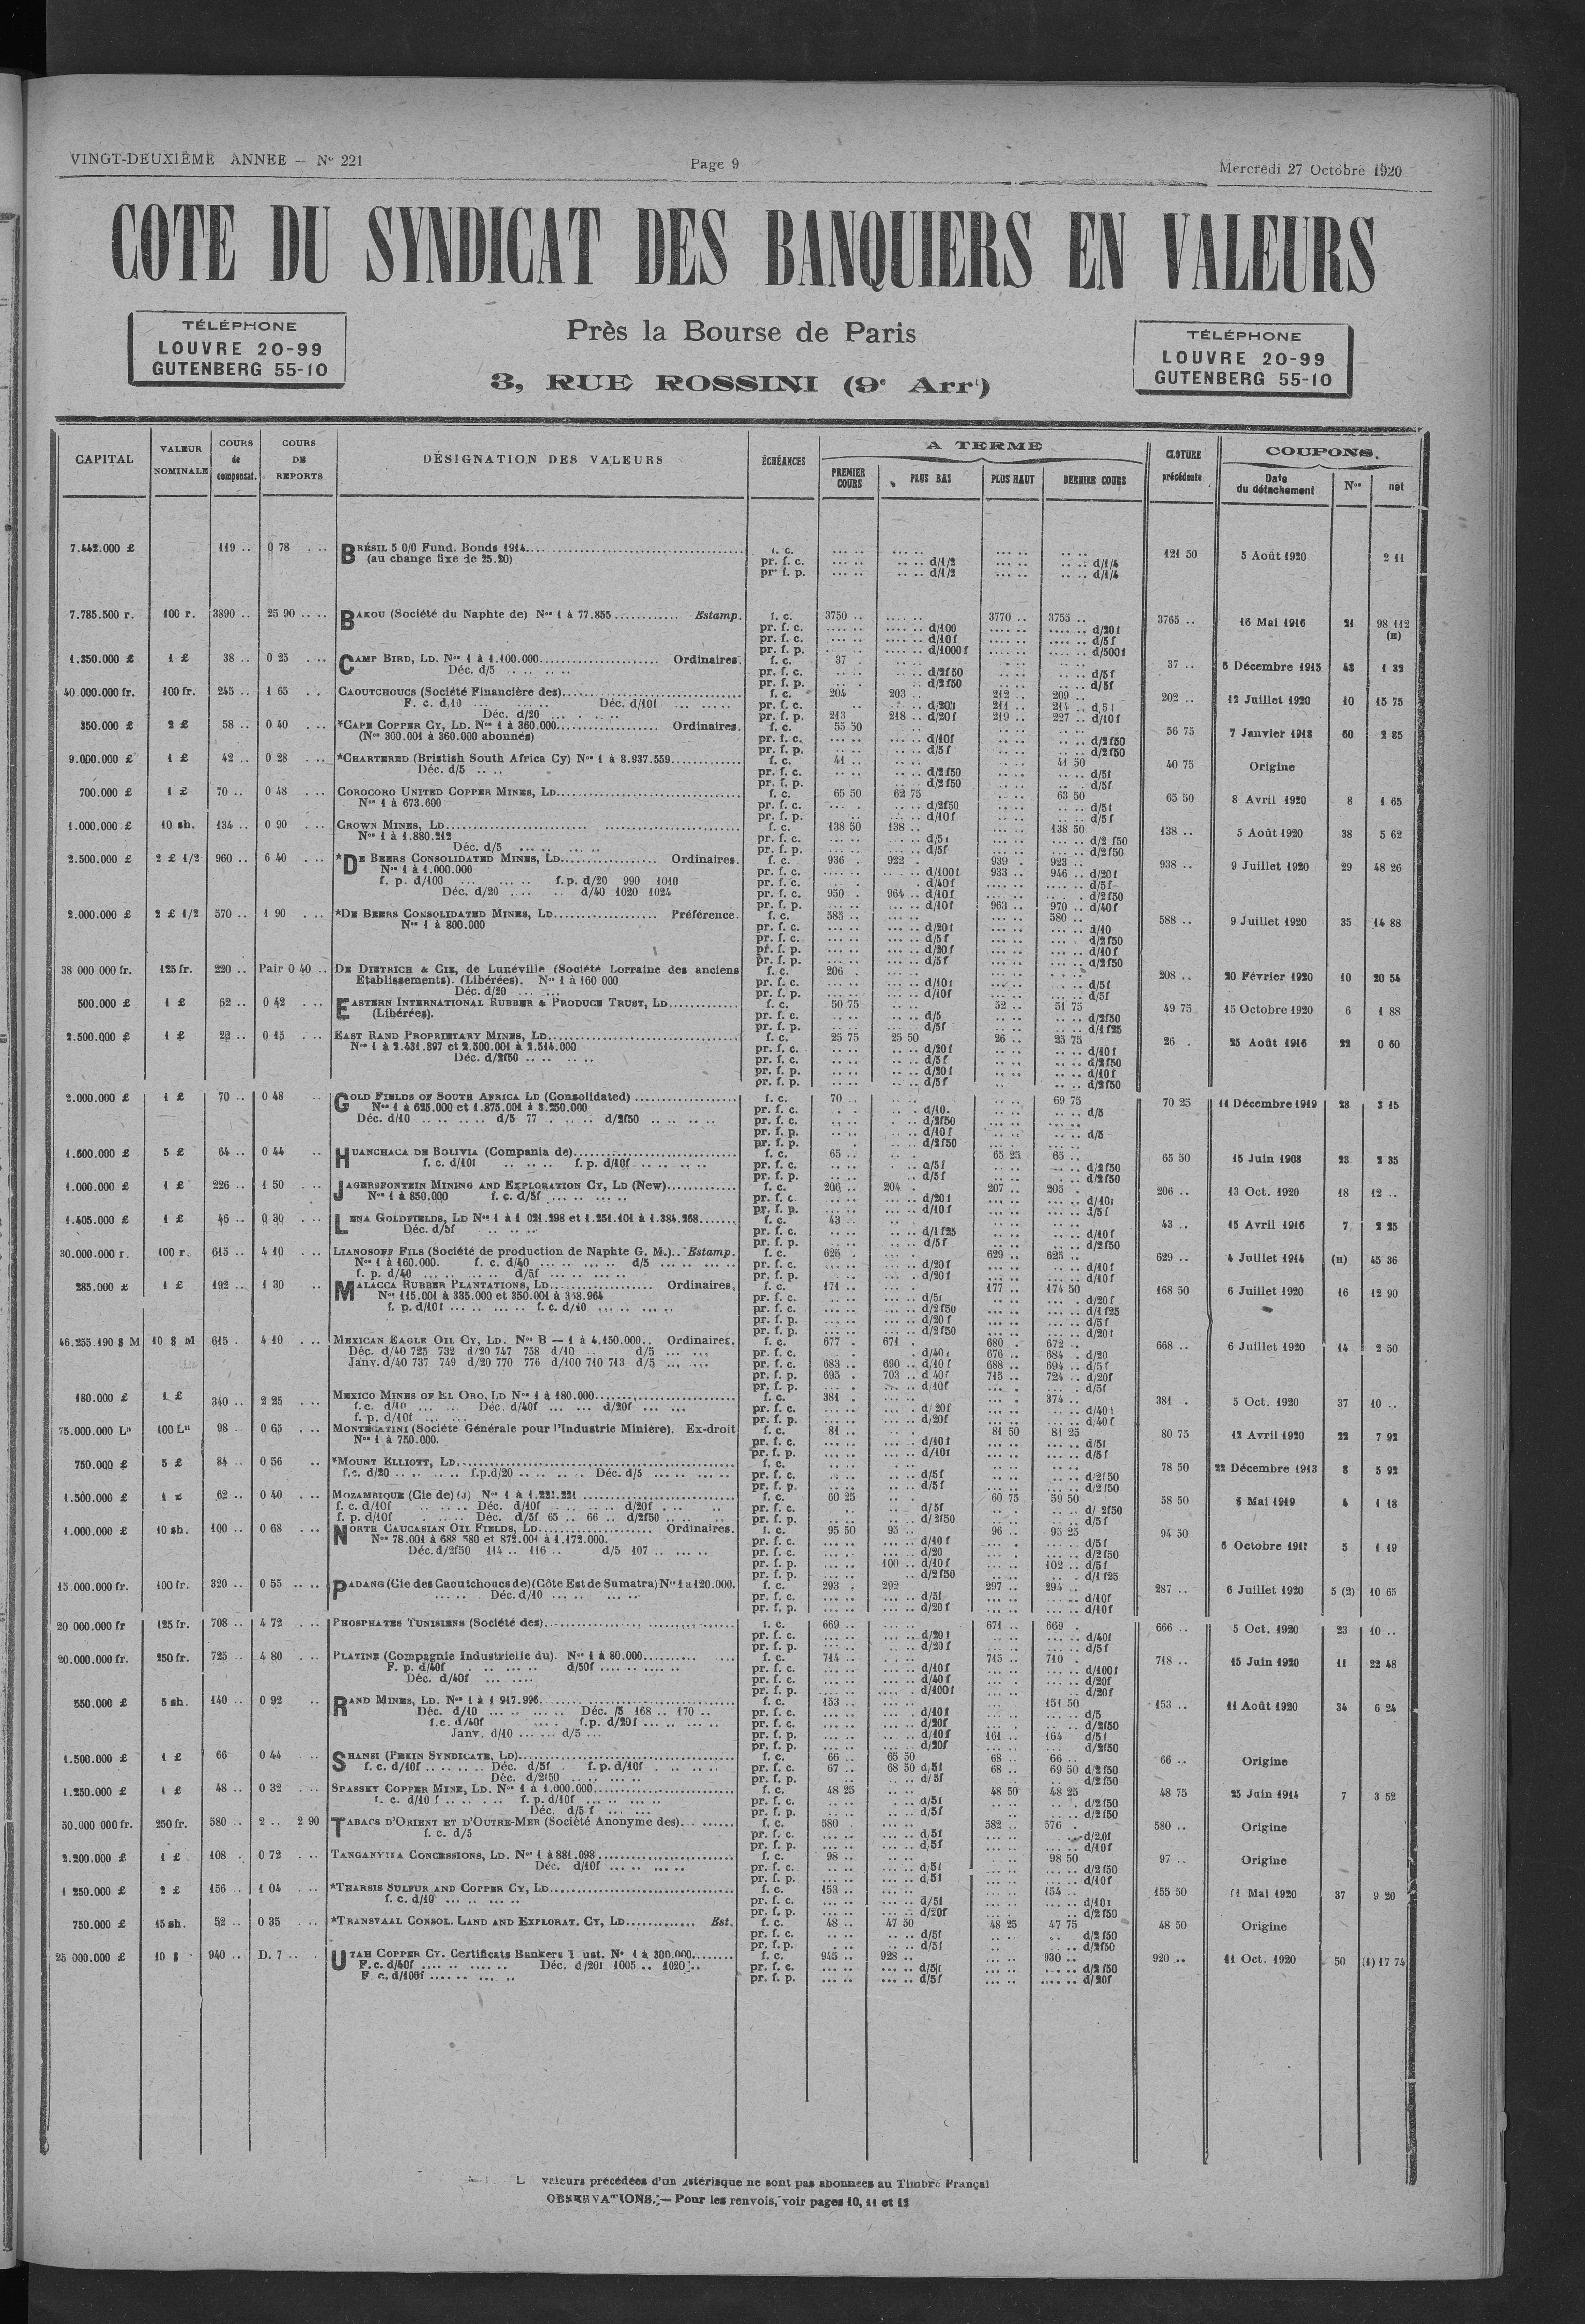 VINGT-DEUXIÈME ANNEE — N° 221
Page 9
Mercredi 27 Octobre 1920
COTE DU SYNDICAT DES BANQUIERS EN VALEURS
Près la Bourse de Paris
3, RUE ROSSINI (9e Arrt)
TÉLÉPHONE
LOUVRE 20-99
GUTENBERG 55-10
TÉLÉPHONE
LOUVRE 20-99
GUTENBERG 55-10
CAPITAL VALEUR NOMINALE COURS de compensat. COURS DE REPORTS DÉSIGNATION DES VALEURS ÉCHÉANCES A TERME PREMIER COURS PLUS BAS PLUS HAUT DERNIER COURS CLOTURE précédente COUPONS. Date du détachement Nos net
7.442.000 £ 119 .. 0 78 BRÉSIL 5 0/0 Fund. Bonds 1914 f. c. 121 50 5 Août 1920 2 11
(au change fixe de 25.20) pr. f. c. d/1/2 d/1/4
pr. f. p. d/1/2 d/1/4
7.785.500 r. 100 r. 3890 .. 25 90 BAKOU (Société du Naphte de) Nos 1 à 77.855 Estamp. f. c. 3750 .. 3770 .. 3755 .. 3765 .. 16 Mai 1916 21 98 112 (H)
pr. f. c. d/100 d/20f
pr. f. c. d/10f d/5f
pr. f. p. d/1000f d/500f
1.350.000 £ 1 £ 38 .. 0 25 CAMP BIRD, LD. Nos 1 à 1.100.000 Ordinaires. f. c. 37 . 37 .. 6 Décembre 1915 43 1 32
Déc. d/5 pr. f. c. d/2f50 d/5f
pr. f. p. d/2f50 d/5f
40.000.000 fr. 100 fr. 245 .. 1 65 CAOUTCHOUCS (Société Financière des) f. c. 204 203 .. 212 .. 209 .. 202 .. 12 Juillet 1920 10 15 75
F. c. d/10 Déc. d/10f pr. f. c. d/20f 211 .. 214 .. d/5f
Déc. d/20 pr. f. p. 213 218 .. d/20f 219 .. 227 .. d/10f
350.000 £ 2 £ 58 .. 0 40 *CAPE COPPER CY, LD. Nos 1 à 360.000 Ordinaires. f. c. 55 50 56 75 7 Janvier 1918 60 2 85
(Nos 300.001 à 360.000 abonnés) pr. f. c. d/10f d/2f50
pr. f. p. d/5f d/2f50
9.000.000 £ 1 £ 42 .. 0 28 *CHARTERED (Bristish South Africa Cy) Nos 1 à 8.937.559 f. c. 41 .. 41 50 40 75 Origine
Déc. d/5 pr. f. c. d/2f50 d/5f
pr. f. p. d/2f50 d/5f
700.000 £ 1 £ 70 .. 0 48 COROCORO UNITED COPPER MINES, LD f. c. 65 50 62 75 63 50 65 50 8 Avril 1920 8 1 65
Nos 1 à 673.600 pr. f. c. d/2f50 d/5f
pr. f. p. d/10f d/5f
1.000.000 £ 10 sh. 134 .. 0 90 CROWN MINES, LD f. c. 138 50 138 .. 138 50 138 .. 5 Août 1920 38 5 62
Nos 1 à 1.880.212 pr. f. c. d/5f d/2f50
Déc. d/5 pr. f. p. d/5f d/2f50
2.500.000 £ 2 £ 1/2 960 .. 6 40 *DE BEERS CONSOLIDATED MINES, LD Ordinaires. f. c. 936 . 922 . 939 . 923 .. 938 .. 9 Juillet 1920 29 48 26
Nos 1 à 1.000.000 pr. f. c. d/100f 933 .. 946 .. d/20f
f. p. d/100 f.p. d/20 990 1010 pr. f. c. d/40f d/5f
Déc. d/20 d/40 1020 1024 pr. f. c. 950 . 964 .. d/10f d/2f50
pr. f. p. d/10f 963 .. 970 .. d/40f
2.000.000 £ 2 £ 1/2 570 .. 1 90 *DE BEERS CONSOLIDATED MINES, LD Préférence. f. c. 585 .. 580 .. 588 .. 9 Juillet 1920 35 14 88
Nos 1 à 800.000 pr. f. c. d/20f d/10
pr. f. c. d/5f d/2f50
pr. f. p. d/20f d/10f
pr. f. p. d/5f d/2f50
38 000 000 fr. 125 fr. 220 .. Pair 0 40 DE DIETRICH & CIE, de Lunéville (Société Lorraine des anciens f. c. 206 . 208 .. 20 Février 1920 10 20 54
Etablissements). (Libérées). Nos 1 à 160 000 pr. f. c. d/10f d/5f
Déc. d/20 pr. f. p. d/10f d/5f
500.000 £ 1 £ 62 .. 0 42 EASTERN INTERNATIONAL RUBBER & PRODUCE TRUST, LD f. c. 50 75 52 .. 51 75 49 75 15 Octobre 1920 6 1 88
(Libérées). pr. f. c. d/5 d/2f50
pr. f. p. d/5f d/1f25
2.500.000 £ 1 £ 22 .. 0 15 EAST RAND PROPRIETARY MINES, LD f. c. 25 75 25 50 26 .. 25 75 26 . 25 Août 1916 22 0 60
Nos 1 à 2.431.897 et 2.500.001 à 2.514.000 pr. f. c. d/20f d/10f
Déc. d/2f50 pr. f. c. d/5f d/2f50
pr. f. p. d/20f d/10f
pr. f. p. d/5f d/2f50
2.000.000 £ 1 £ 70 .. 0 48 GOLD FIELDS OF SOUTH AFRICA LD (Consolidated) f. c. 70 .. 69 75 70 25 11 Décembre 1919 28 3 15
Nos 1 à 625.000 et 1.875.001 à 3.250.000 pr. f. c. d/10. d/5
Déc. d/10 d/5 77 d/2f50 pr. f. c. d/2f50
pr. f. p. d/10f d/5
pr. f. p. d/2f50
1.600.000 £ 5 £ 64 .. 0 44 HUANCHACA DE BOLIVIA (Compania de) f. c. 65 .. 65 25 65 .. 65 50 15 Juin 1908 23 2 35
f. c. d/10f f. p. d/10f pr. f. c. d/5f d/2f50
pr. f. p. d/5f d/2f50
1.000.000 £ 1 £ 226 .. 1 50 JAGERSFONTEIN MINING AND EXPLORATION CY, LD (New) f. c. 206 .. 204 . 207 .. 205 . 206 .. 13 Oct. 1920 18 12 ..
Nos 1 à 850.000 f. c. d/5f pr. f. c. d/20f d/10f
pr. f. p. d/10f d/5f
1.405.000 £ 1 £ 46 .. 0 30 LENA GOLDFIELDS, LD Nos 1 à 1 021.298 et 1.251.101 à 1.384.268 f. c. 43 .. 43 .. 15 Avril 1916 7 2 25
Déc. d/5f pr. f. c. d/1f25 d/10f
pr. f. p. d/5f d/2f50
30.000.000 r. 100 r. 615 .. 4 10 LIANOSOFF FILS (Société de production de Naphte G. M.) Estamp. f. c. 625 . 629 .. 625 .. 629 .. 4 Juillet 1914 (H) 45 36
Nos 1 à 160.000. f. c. d/40 d/5 pr. f. c. d/20f d/10f
f. p. d/40 d/5f pr. f. p. d/20f d/10f
285.000 £ 1 £ 192 .. 1 30 MALACCA RUBBER PLANTATIONS, LD Ordinaires. f. c. 171 .. 177 .. 174 50 168 50 6 Juillet 1920 16 12 90
Nos 115.001 à 335.000 et 350.001 à 368.964 pr. f. c. d/5f d/20f
f. p. d/10f f. c. d/10 pr. f. c. d/2f50 d/1f25
pr. f. p. d/20f d/5f
pr. f. p. d/2f50 d/20f
46.255.190 $ M 10 $ M 615 . 4 10 MEXICAN EAGLE OIL CY, LD. Nos B — 1 à 4.150.000 Ordinaires. f. c. 677 . 671 . 680 . 672 .. 668 .. 6 Juillet 1920 14 2 50
Déc. d/40 725 732 d/20 747 758 d/10 d/5 pr. f. c. d/40f 676 .. 684 . d/20
Janv. d/40 737 749 d/20 770 776 d/100 710 713 d/5 pr. f. c. 683 .. 690 .. d/10f 688 .. 694 .. d/5f
pr. f. p. 695 . 703 .. d/40f 715 .. 724 .. d/20f
pr. f. p. d/10f d/5f
180.000 £ 1 £ 340 .. 2 25 MEXICO MINES OF EL ORO, LD Nos 1 à 180.000 f. c. 381 . 374 .. 381 . 5 Oct. 1920 37 10 ..
f. c. d/10 Déc. d/40f d/20f pr. f. c. d/20f d/40f
f. p. d/10f pr. f. p. d/20f d/40f
75.000.000 Les 100 Les 98 .. 0 65 MONTECATINI (Société Générale pour l'Industrie Minière). Ex-droit f. c. 81 .. 81 50 81 25 80 75 12 Avril 1920 22 7 92
Nos 1 à 750.000. pr. f. c. d/10f d/5f
pr. f. p. d/10f d/5f
750.000 £ 5 £ 84 .. 0 56 *MOUNT ELLIOTT, LD f. c. 78 50 22 Décembre 1913 8 5 92
f.c. d/20 f.p.d/20 Déc. d/5 pr. f. c. d/5f d/2f50
pr. f. p. d/5f d/2f50
1.500.000 £ 1 £ 62 .. 0 40 MOZAMBIQUE (Cie de) (J) Nos 1 à 1.221.221 f. c. 60 25 60 75 59 50 58 50 5 Mai 1919 4 1 18
f. c. d/10f Déc. d/10f d/20f pr. f. c. d/5f d/2f50
f. p. d/10f Déc. d/5f 65 .. 66 .. d/2f50 pr. f. p. d/2f50 d/5f
1.000.000 £ 10 sh. 100 .. 0 68 NORTH CAUCASIAN OIL FIELDS, LD Ordinaires. f. c. 95 50 95 .. 96 .. 95 25 94 50 6 Octobre 5 1 19
Nos 78.001 à 688 580 et 872.001 à 1.172.000. pr. f. c. d/10f d/5f
Déc. d/2f50 114 .. 116 .. d/5 107 pr. f. c. d/20 d/2f50
pr. f. p. 100 .. d/10f 102 .. d/5f
pr. f. p. d/2f50 d/1f25
15.000.000 fr. 100 fr. 320 .. 0 55 PADANG (Cie des Caoutchoucs de) (Côte Est de Sumatra) Nos 1 a 120.000. f. c. 293 . 292 297 .. 294 .. 287 .. 6 Juillet 1920 5 (2) 10 65
Déc. d/10 pr. f. c. d/5f d/10f
pr. f. p. d/20f d/10f
20 000.000 fr 125 fr. 708 .. 4 72 PHOSPHATES TUNISIENS (Société des) f. c. 669 .. 671 .. 669 . 666 .. 5 Oct. 1920 23 10 ..
pr. f. c. d/20f d/40f
pr. f. p. d/20f d/5f
20.000.000 fr. 250 fr. 725 .. 4 80 PLATINE (Compagnie Industrielle du). Nos 1 à 80.000 f. c. 714 .. 715 .. 710 . 718 .. 15 Juin 1920 11 22 48
F. p. d/40f d/50f pr. f. c. d/10f d/100f
Déc. d/40f pr. f. c. d/40f d/20f
pr. f. p. d/100f d/20f
550.000 £ 5 sh. 140 .. 0 92 RAND MINES, LD. Nos 1 à 1 917.996 f. c. 153 .. 151 50 153 .. 11 Août 1920 34 6 24
Déc. d/10 Déc. /5 168 .. 170 .. pr. f. c. d/10f d/5
f.c. d/40f f.p. d/20f pr. f. c. d/20f d/2f50
Janv. d/10 d/5 pr. f. p. d/10f 161 .. 164 d/5f
pr. f. p. d/20f d/2f50
1.500.000 £ 1 £ 66 0 44 SHANSI (PEKIN SYNDICATE, LD) f. c. 66 .. 65 50 68 .. 66 .. 66 .. Origine
f. c. d/10f Déc. d/5f f. p. d/10f pr. f. c. 67 .. 68 50 d/5f 68 .. 69 50 d/2f50
Déc. d/2f50 pr. f. p. d/5f d/2f50
1.250.000 £ 1 £ 48 .. 0 32 SPASSKY COPPER MINE, LD. Nos 1 à 1.000.000 f. c. 48 25 48 50 48 25 48 75 25 Juin 1914 7 3 52
f. c. d/10 f f. p. d/10f pr. f. c. d/5f d/2f50
Déc. d/5 f pr. f. p. d/5f d/2f50
50.000 000 fr. 250 fr. 580 .. 2 .. 2 90 TABACS D'ORIENT ET D'OUTRE-MER (Société Anonyme des) f. c. 580 . 582 .. 576 . 580 .. Origine
f. c. d/5 pr. f. c. d/5f d/20f
pr. f. p. d/5f d/10f
2.200.000 £ 1 £ 108 . 0 72 TANGANYIKA CONCESSIONS, LD. Nos 1 à 881.098 f. c. 98 .. 98 50 97 .. Origine
Déc. d/10f pr. f. c. d/5f d/2f50
pr. f. p. d/5f d/10f
1 250.000 £ 2 £ 156 .. 1 04 *THARSIS SULFUR AND COPPER CY, LD f. c. 153 .. 154 .. 155 50 11 Mai 1920 37 9 20
f. c. d/10 pr. f. c. d/5f d/10f
pr. f. p. d/20f d/2f50
750.000 £ 15 sh. 52 .. 0 35 *TRANSVAAL CONSOL. LAND AND EXPLORAT. CY, LD Est. f. c. 48 .. 47 50 48 25 47 75 48 50 Origine
pr. f. c. d/5f d/2f50
pr. f. p. d/5f d/2f50
25 000.000 £ 10 $ 940 .. D. 7 .. UTAH COPPER CY. Certificats Bankers ust. Nos 1 à 300.000 f. c. 945 .. 928 .. 930 .. 920 .. 11 Oct. 1920 50 (1) 17 74
F. c. d/40f Déc. d/20f 1005 .. 1020 .. pr. f. c. d/5f d/2f50
F c. d/100f pr. f. p. d/5f d/20f
L valeurs précédées d'un stérisque ne sont pas abonnees au Timbre Françai
OBSERVATIONS. — Pour les renvois, voir pages 10, 11 et 12